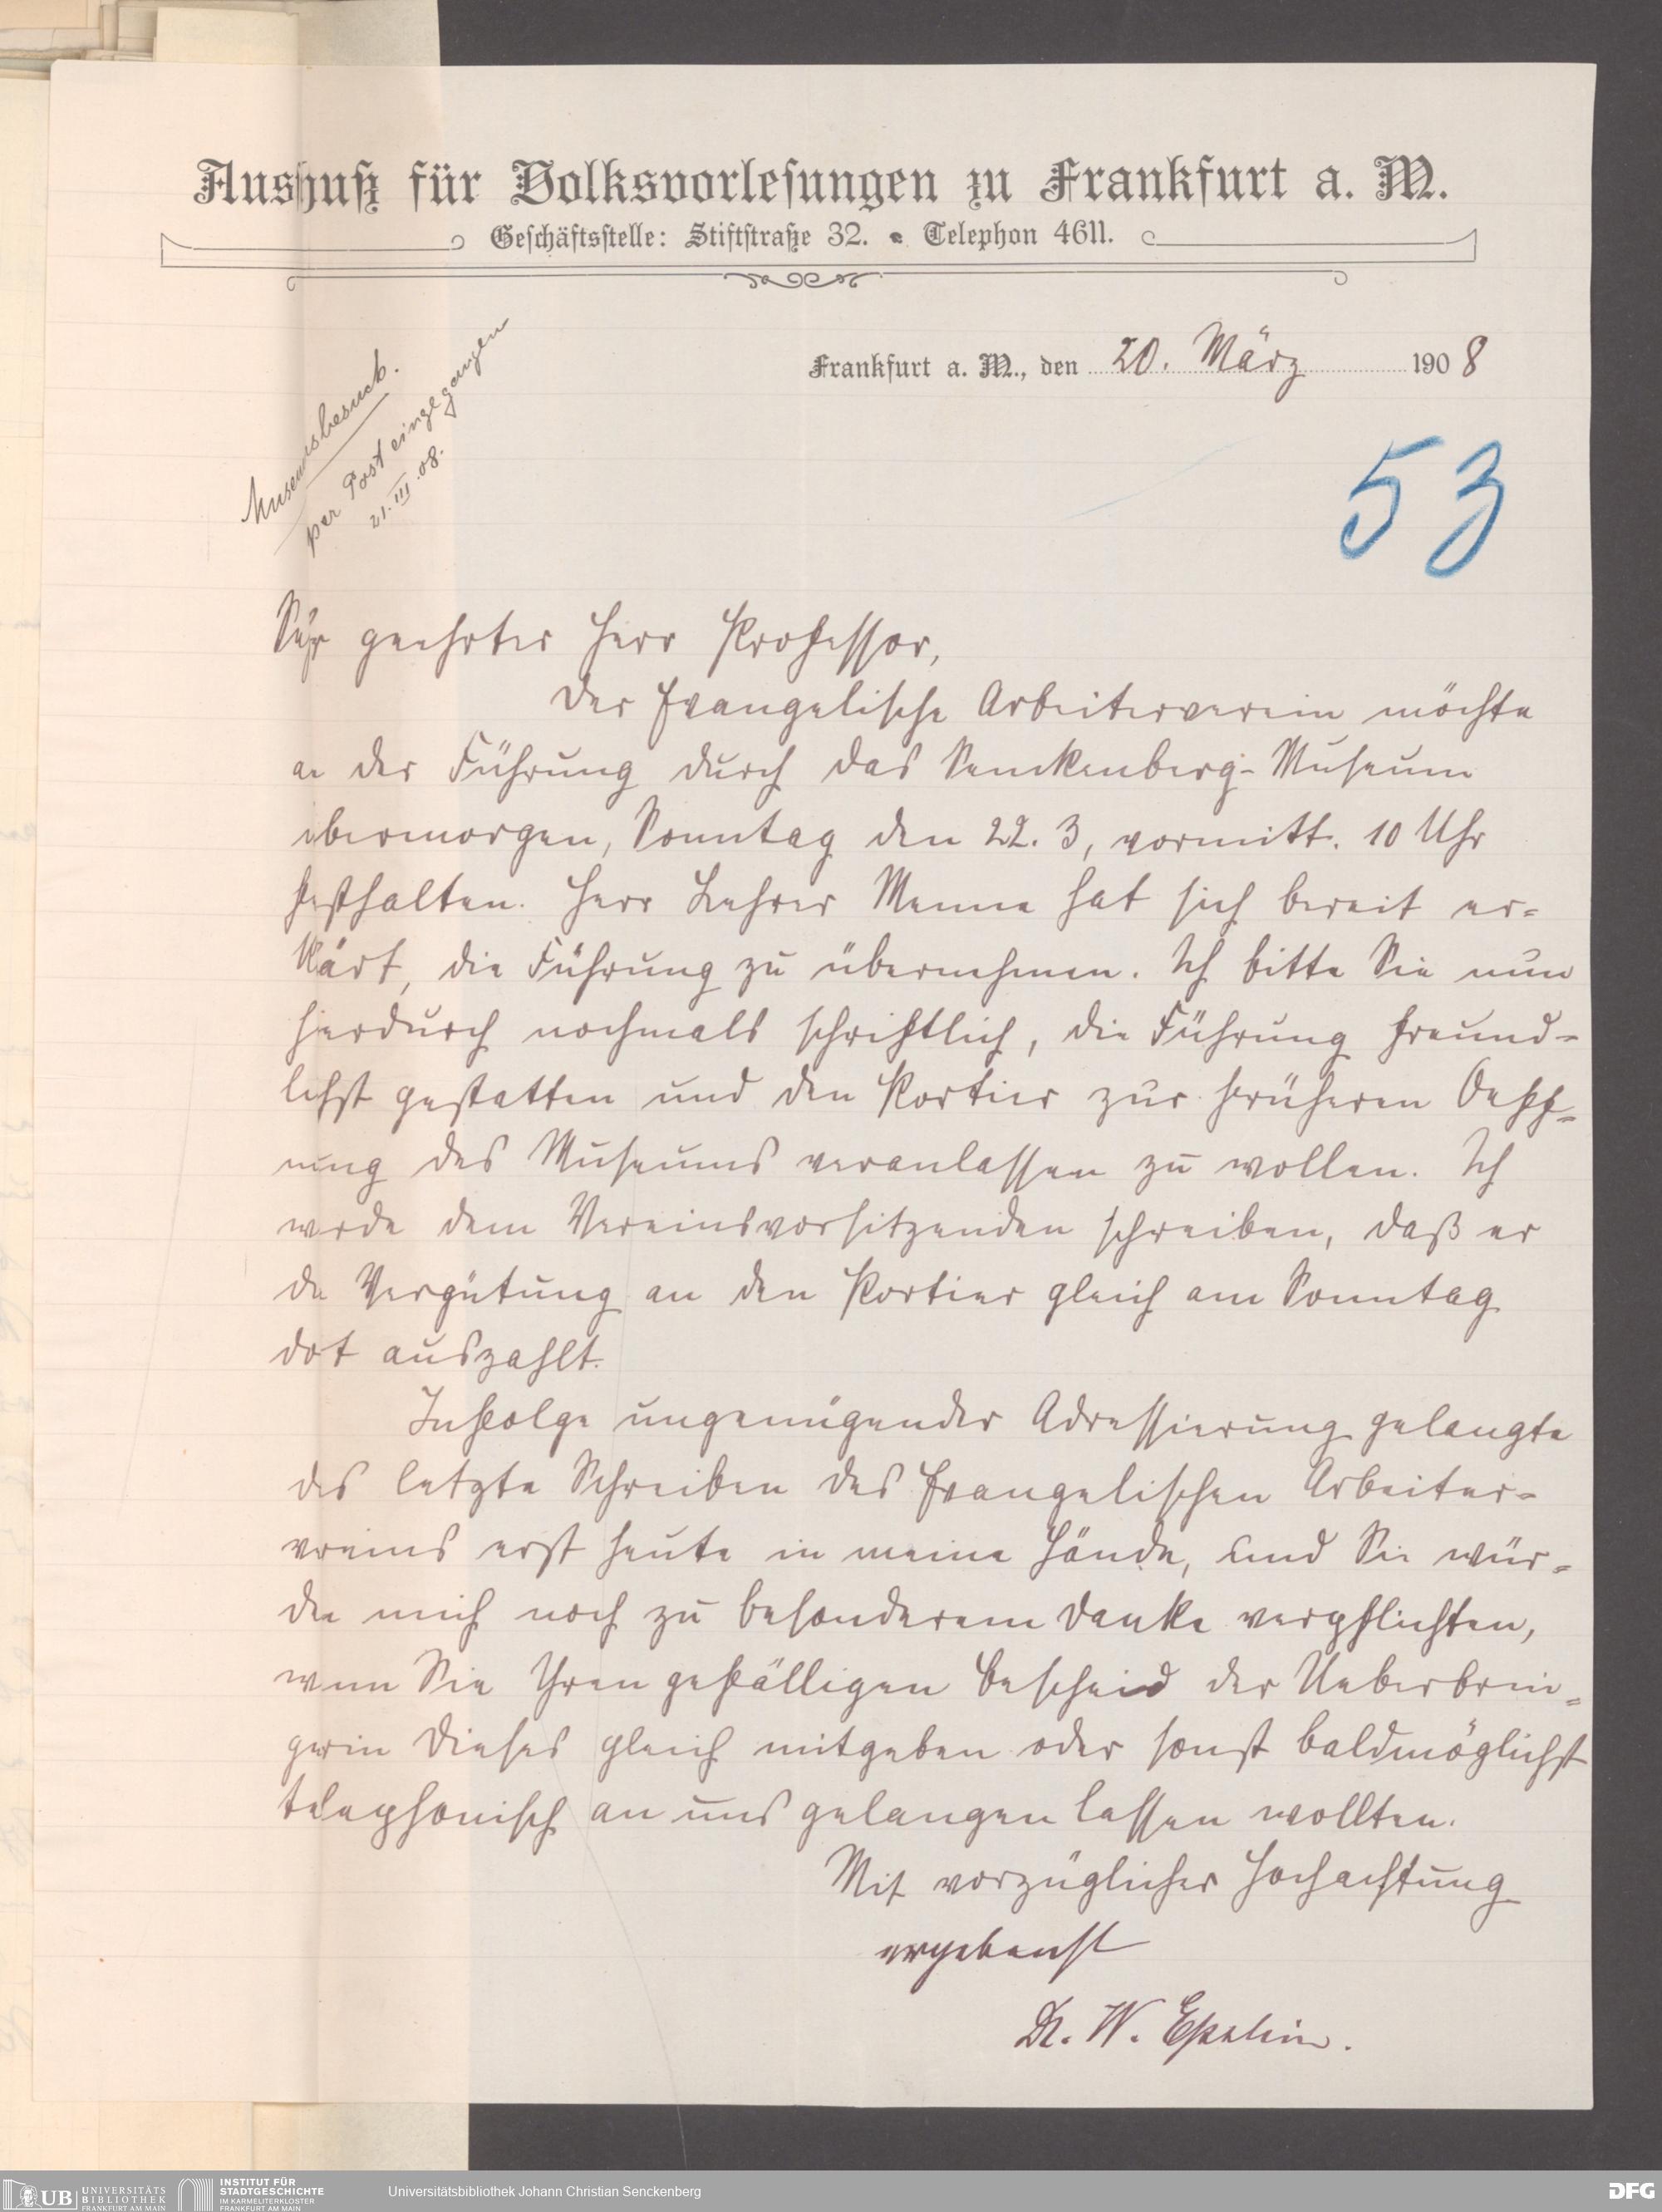 Ausschuß für Volksvorlesungen zu Frankfurt a. M.
Geschäftsstelle: Stiftstraße 32. • Telephon 4611.
Frankfurt a. M., den 20. März 1908
Museumsbesuch.
per Post eingegangen
21. III. 08.
53
Sehr geehrter Herr Professor,
der Evangelische Arbeiterverein möchte
an der Führung durch das Senckenberg-Museum
übermorgen, Sonntag den 22. 3, vormitt. 10 Uhr
festhalten. Herr Lehrer Menne hat sich bereit er-
klärt, die Führung zu übernehmen. Ich bitte Sie nun
hierdurch nochmals schriftlich, die Führung freund-
lichst gestatten und den Portier zur früheren Oeff-
nung des Museums veranlassen zu wollen. Ich
werde dem Vereinsvorsitzenden schreiben, daß er
die Vergütung an den Portier gleich am Sonntag
dort auszahlt.
Infolge ungenügender Adressierung gelangte
das letzte Schreiben des Evangelischen Arbeiter-
vereins erst heute in meine Hände, und Sie wür-
den mich noch zu besonderem Danke verpflichten,
wenn Sie Ihren gefälligen Bescheid der Ueberbrin-
gerin dieses gleich mitgeben oder sonst baldmöglichst
telephonisch an uns gelangen lassen wollten.
Mit vorzüglicher Hochachtung
ergebenst
Dr. W. Epstein.
UB UNIVERSITÄTS
BIBLIOTHEK
FRANKFURT AM MAIN
INSTITUT FÜR
STADTGESCHICHTE
IM KARMELITERKLOSTER
FRANKFURT AM MAIN
Universitätsbibliothek Johann Christian Senckenberg
DFG